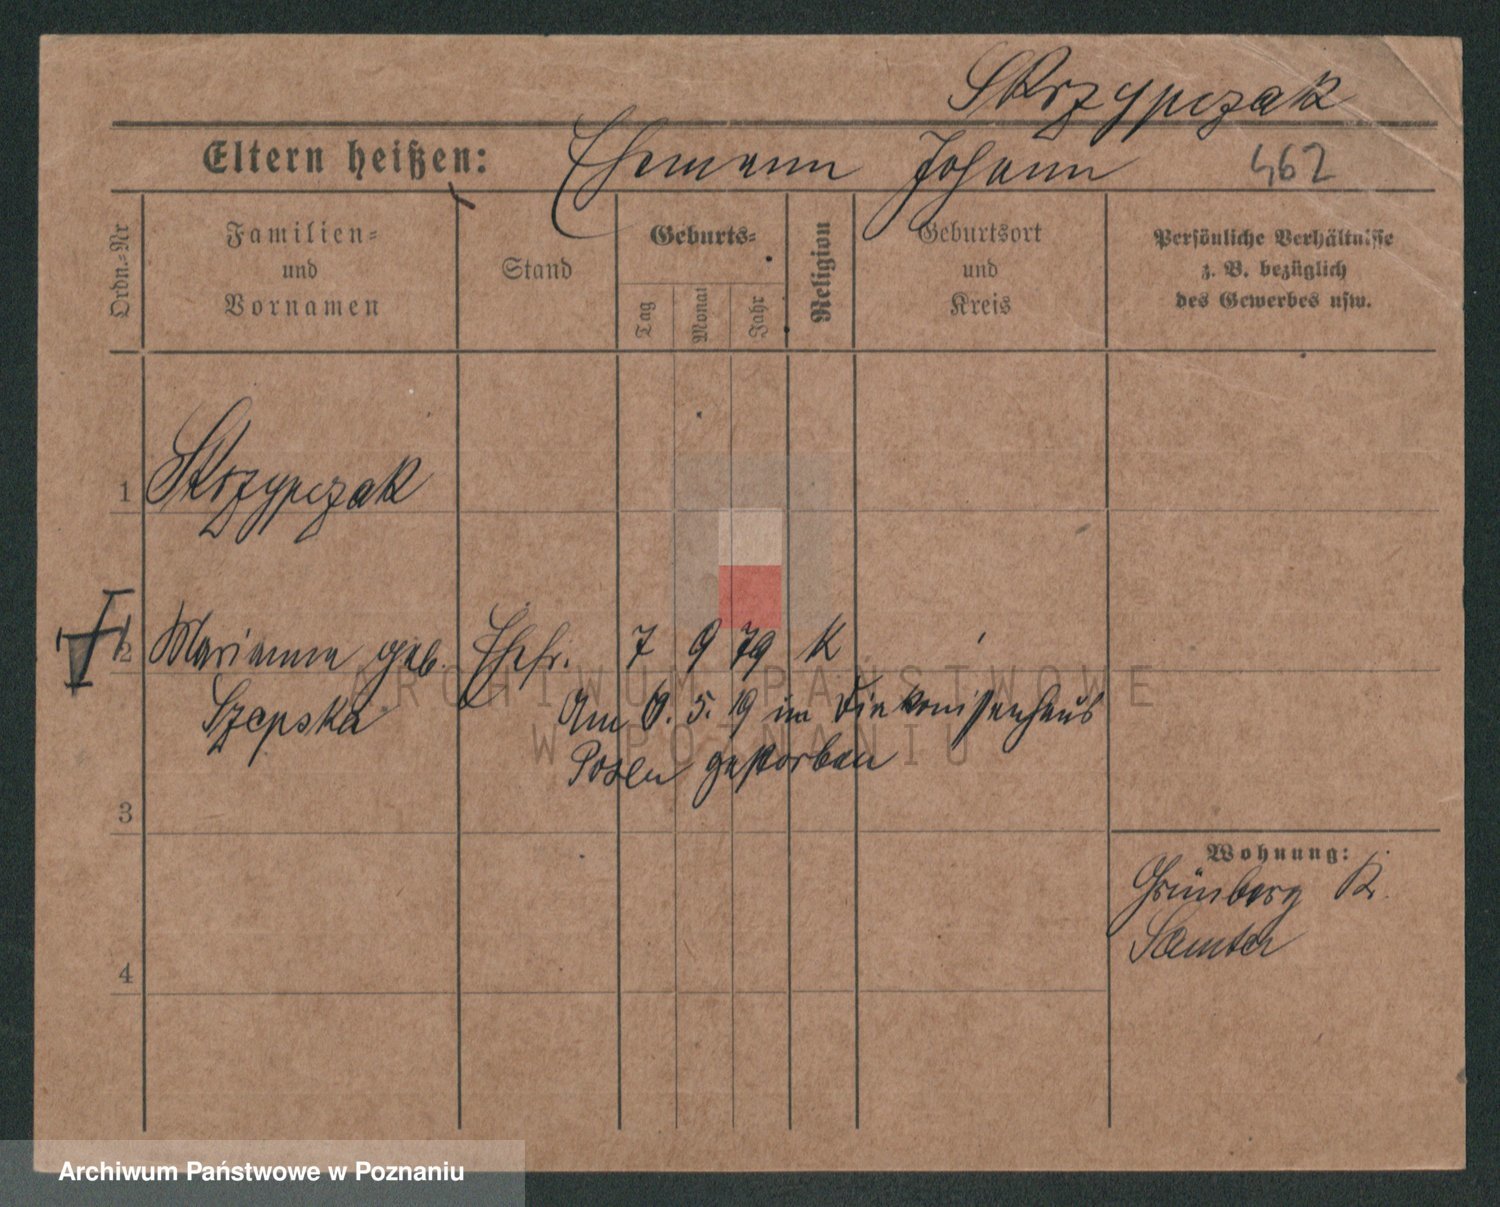 Skrzypczak
Eltern heißen: Ehemann Johann 462
Ordn.-Nr
Familien-
und
Vornamen
Stand
Geburts-
Tag Monat Jahr
Religion
Geburtsort
und
Kreis
Persönliche Verhältnisse
z. B. bezüglich
des Gewerbes usw.
1 Skrzypczak
2 Marianna geb. Ehefr. 7 9 79 K
Szepska Am 6. 5. 19 im Diakonissenhaus
Posen gestorben
3
Wohnung:
Grünberg K.
Samter
4
ARCHIWUM PAŃSTWOWE
W POZNANIU
Archiwum Państwowe w Poznaniu